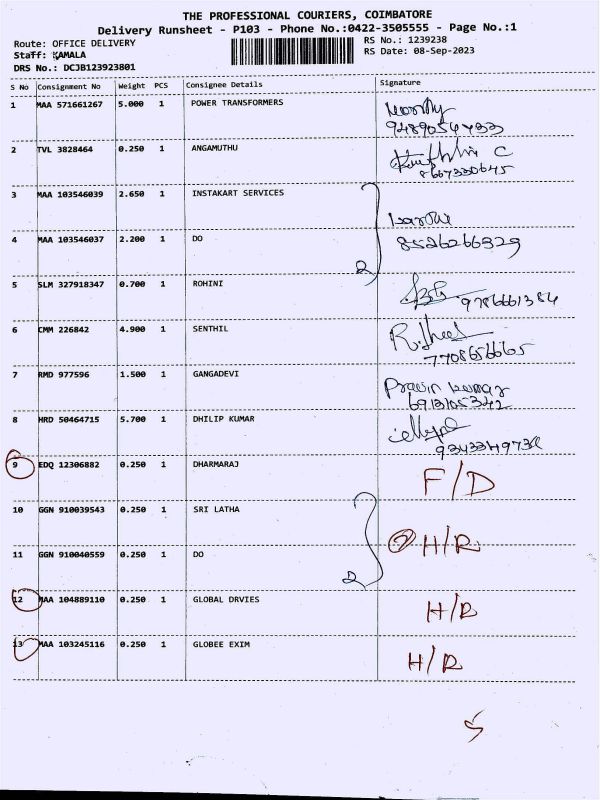 THE PROFESSIONAL COURIERS, COIMBATORE
Delivery Runsheet - P103 - Phone No.:0422-3505555 - Page No.:1
Route: OFFICE DELIVERY
Staff: KAMALA
DRS No.: DCJB123923801
RS No.: 1239238
RS Date: 08-Sep-2023
S No Consignment No Weight PCS Consignee Details Signature
1 MAA 571661267 5.000 1 POWER TRANSFORMERS
9489054733
2 TVL 3828464 0.250 1 ANGAMUTHU
8667330645
3 MAA 103546039 2.650 1 INSTAKART SERVICES
4 MAA 103546037 2.200 1 DO 8526266329
2
5 SLM 327918347 0.700 1 ROHINI
9786661384
6 CMM 226842 4.900 1 SENTHIL
7708656665
7 RMD 977596 1.500 1 GANGADEVI
Pravin kumar
6913105342
8 HRD 50464715 5.700 1 DHILIP KUMAR
9 EDQ 12306882 0.250 1 DHARMARAJ F/D
10 GGN 910039543 0.250 1 SRI LATHA
2 H/R
11 GGN 910040559 0.250 1 DO
2
12 MAA 104889110 0.250 1 GLOBAL DRVIES H/R
13 MAA 103245116 0.250 1 GLOBEE EXIM H/R
5